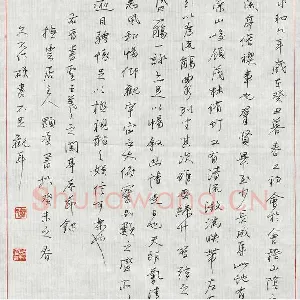 永和九年歲在癸丑暮春之初會於會稽山陰
蘭亭脩禊事也羣賢畢至少長咸集此地有
崇山峻領茂林脩竹又有清流激湍映帶
以為流觴曲水列坐其次雖無絲竹管弦之
一觴一詠亦足以暢敘幽情是日也天朗氣清
惠風和暢仰觀宇宙之大俯察品類之盛所以
遊目騁懷足以極視聽之娛信可樂也
右晉書聖王羲之蘭亭序
梅雲居主人書於癸未之春
久不作硬書不足觀耳
Shufawang.cn